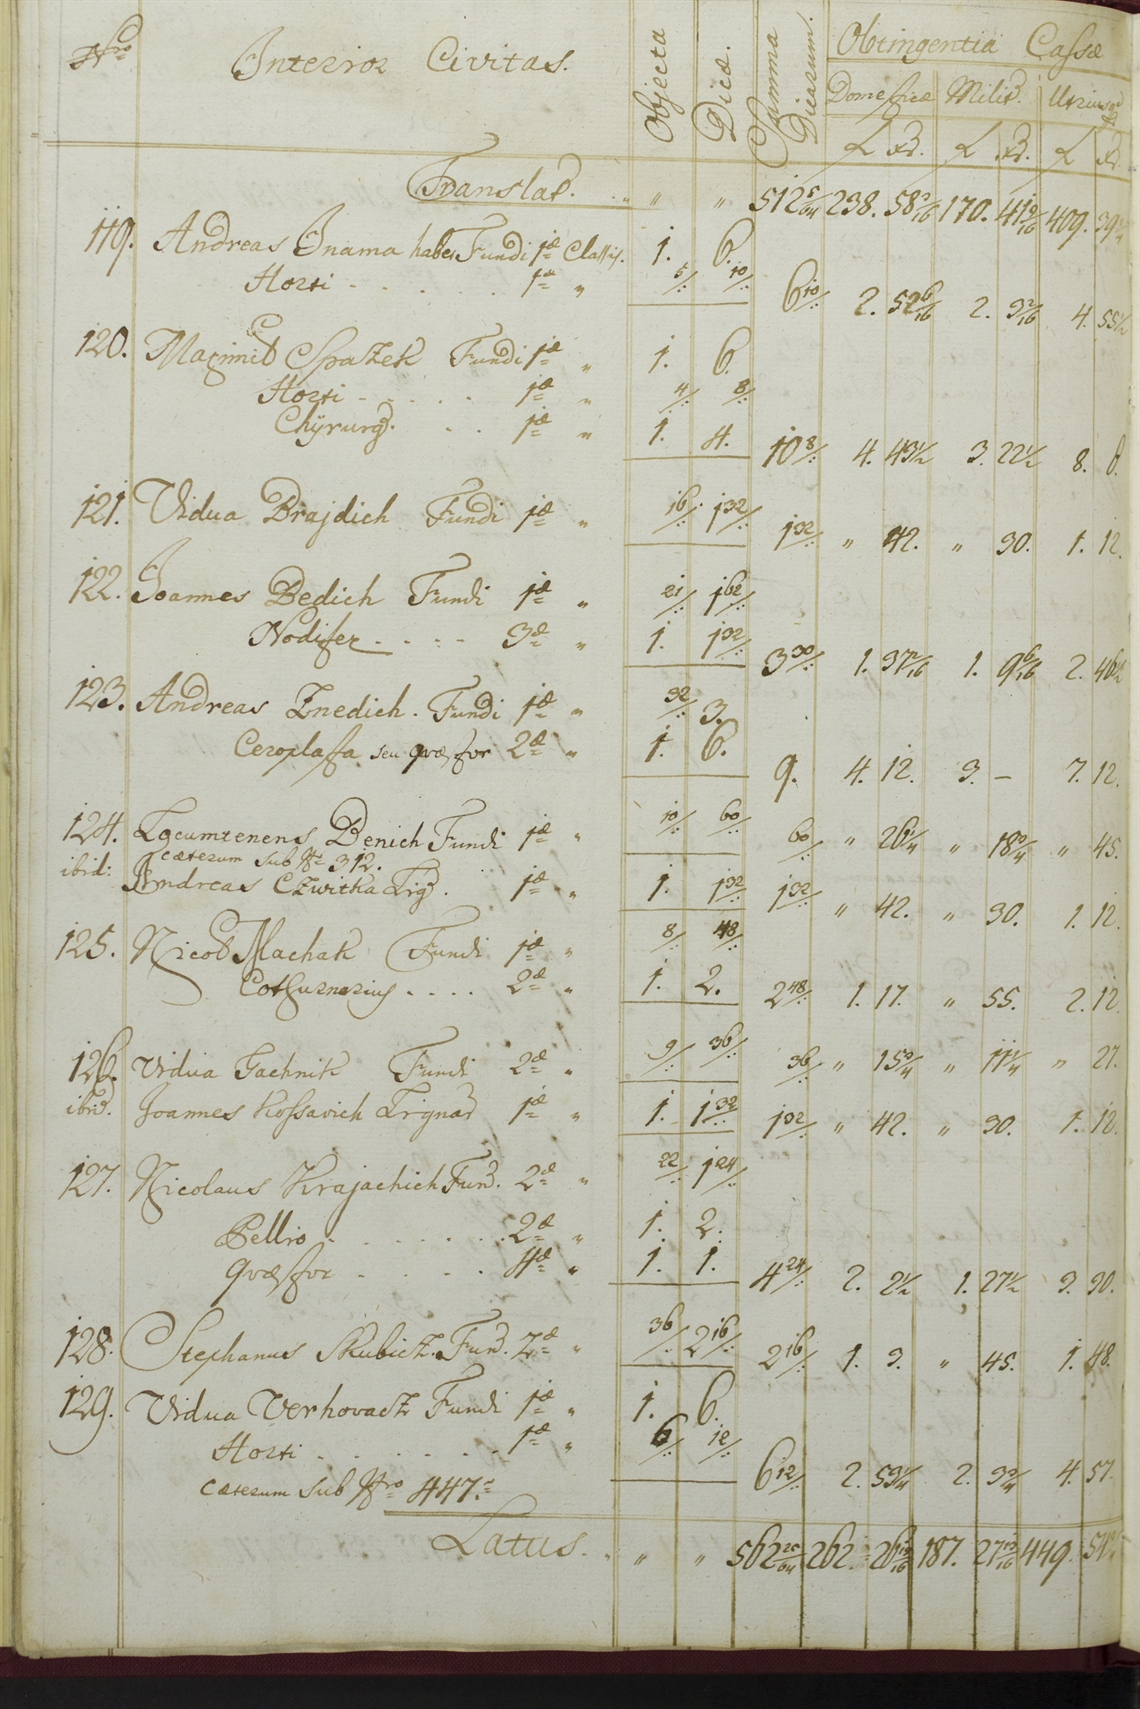 Nro Interior Civitas. Objecta Dicæ. Summa Dicarum. Obtingentia Cassæ
Domesticæ Milit. Utriusq
f xr. f xr. f xr.
Translat. " " 512 5/64 238. 58 170. 41 409. 39
119. Andreas Inama habet Fundi 1æ Classis. 1. 6.
Horti 1æ " 5/:: 10/:: 6 10/:: 2. 52 6/16 2. 3 2/16 4. 55 1/2
120. Maximil Spazek Fundi 1æ " 1. 6.
Horti 1æ " 4/:: 8/::
Chÿrurg. 1æ " 1. 4. 10 8/:: 4. 43 1/2 3. 22 1/2 8. 6.
121. Vidua Brajdich Fundi 1æ " 16/:: 1 32/:: 1 32/:: " 42. " 30. 1. 12.
122. Joannes Bedich Fundi 1æ " 21/:: 1 62/::
Nodifex 3æ " 1. 1 32/:: 3 30/:: 1. 37 1. 9 6/16 2. 46
123. Andreas Znedich. Fundi 1æ " 32/:: 3.
Ceroplasta seu quæstor 2æ " 1. 6. 9. 4. 12. 3. — 7. 12.
124. Locumtenens Benich Fundi 1æ " 10/:: 60/:: 60/:: " 26 1/4 " 18 3/4 " 45.
cæterum sub Nr 312.
ibid: Andreas Czvitka Lig. 1æ " 1. 1 32/:: 1 32/:: " 42. " 30. 1. 12.
125. Nicol Machak Fundi 1æ " 8/:: 48/::
Cothurnarius 2æ " 1. 2. 2 48/:: 1. 17. " 55. 2. 12.
126. Vidua Gachnik Fundi 2æ " 9/:: 36/:: 36/:: " 15 3/4 " 11 1/4 " 27.
ibid. Joannes Kossavich Lignar 1æ " 1. 1 32/:: 1 32/:: " 42. " 30. 1. 12.
127. Nicolaus Krajachich Fund. 2æ " 22/:: 1 24/::
Pellio 2æ " 1. 2.
Quæstor 4æ " 1. 1. 4 24/:: 2. 2 1/2 1. 27 1/2 3. 30.
128. Stephanus Skubicz. Fund. 2æ " 36/:: 2 16/:: 2 16/:: 1. 3. " 45. 1. 48.
129. Vidua Verhovacz Fundi 1æ " 1. 6.
Horti 1æ " 6/:: 12/:: 6 12/:: 2. 53 1/4 2. 3 3/4 4. 57.
cæterum sub Nro 447.
Latus. " " 562 262. 26 187. 27 449. 54